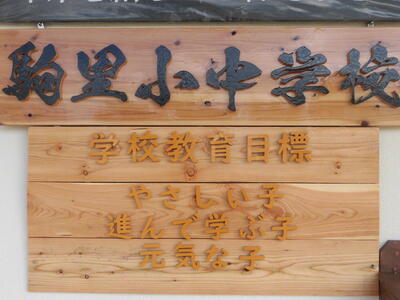 駒里小中学校
学校教育目標
やさしい子
進んで学ぶ子
元気な子